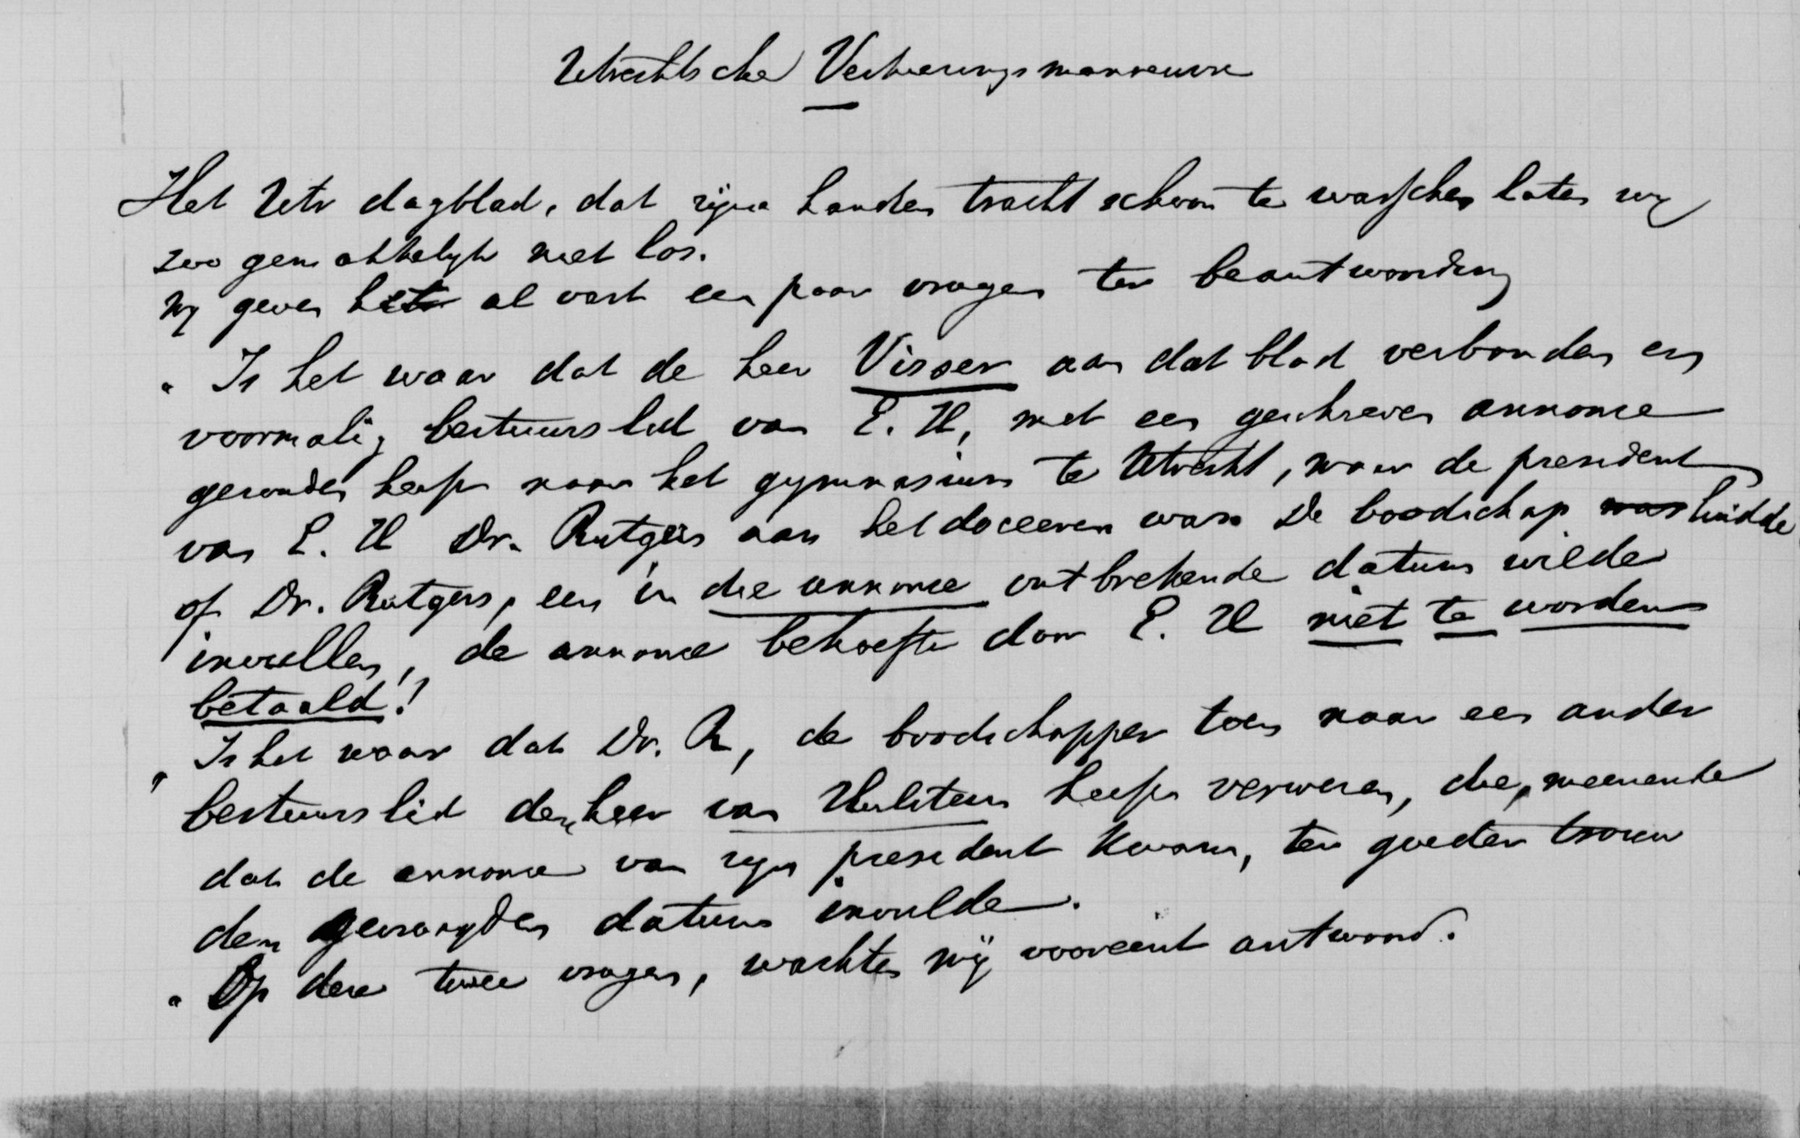 Utrechtsche Verkiezingsmanoeuvre
Het Utr dagblad, dat zijne handen tracht schoon te wasschen laten wij
zoo gemakkelijk niet los.
Wij geven het al vast een paar vragen ter beantwoording
" Is het waar dat de heer Visser aan dat blad verbonden en
voormalig bestuurslid van E. H, met een geschreven annonce
gezonden heeft naar het gymnasium te Utrecht, waar de president
van E. H Dr. Rutgers aan het doceeren was. De boodschap luidde
of Dr. Rutgers, een in die annonce ontbrekende datum wilde
invullen, de annonce behoefte door E. H niet te worden
betaald!
" Is het waar dat Dr. R, de boodschapper toen naar een ander
bestuurslid den heer van Hulsteun heeft verwezen, die, meenende
dat de annonce van zijn president kwam, ter goeder trouw
den gevraagden datum invulde.
" Op deze twee vragen, wachten wij vooreerst antwoord.